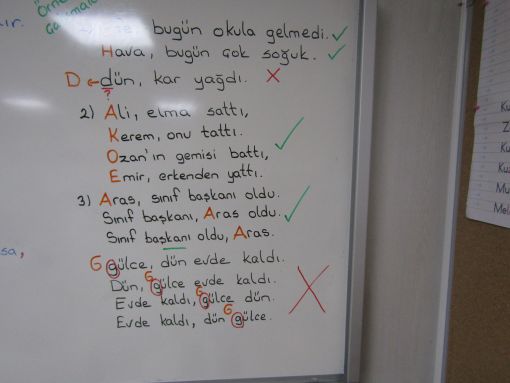 Örne
ır.
bugün okula gelmedi.
Hava, bugün çok soğuk.
D ← dün, kar yağdı. X
?
2) Ali, elma sattı,
Kerem, onu tattı.
Ozan'ın gemisi battı,
Emir, erkenden yattı.
3) Aras, sınıf başkanı oldu.
Sınıf başkanı, Aras oldu.
Sınıf başkanı oldu, Aras.
sa,
G gülce, dün evde kaldı.
G
Dün, gülce evde kaldı.
G
Evde kaldı, gülce dün.
G
Evde kaldı, dün gülce.
Ku
Z
Ku
Kuz
Mu
Mel